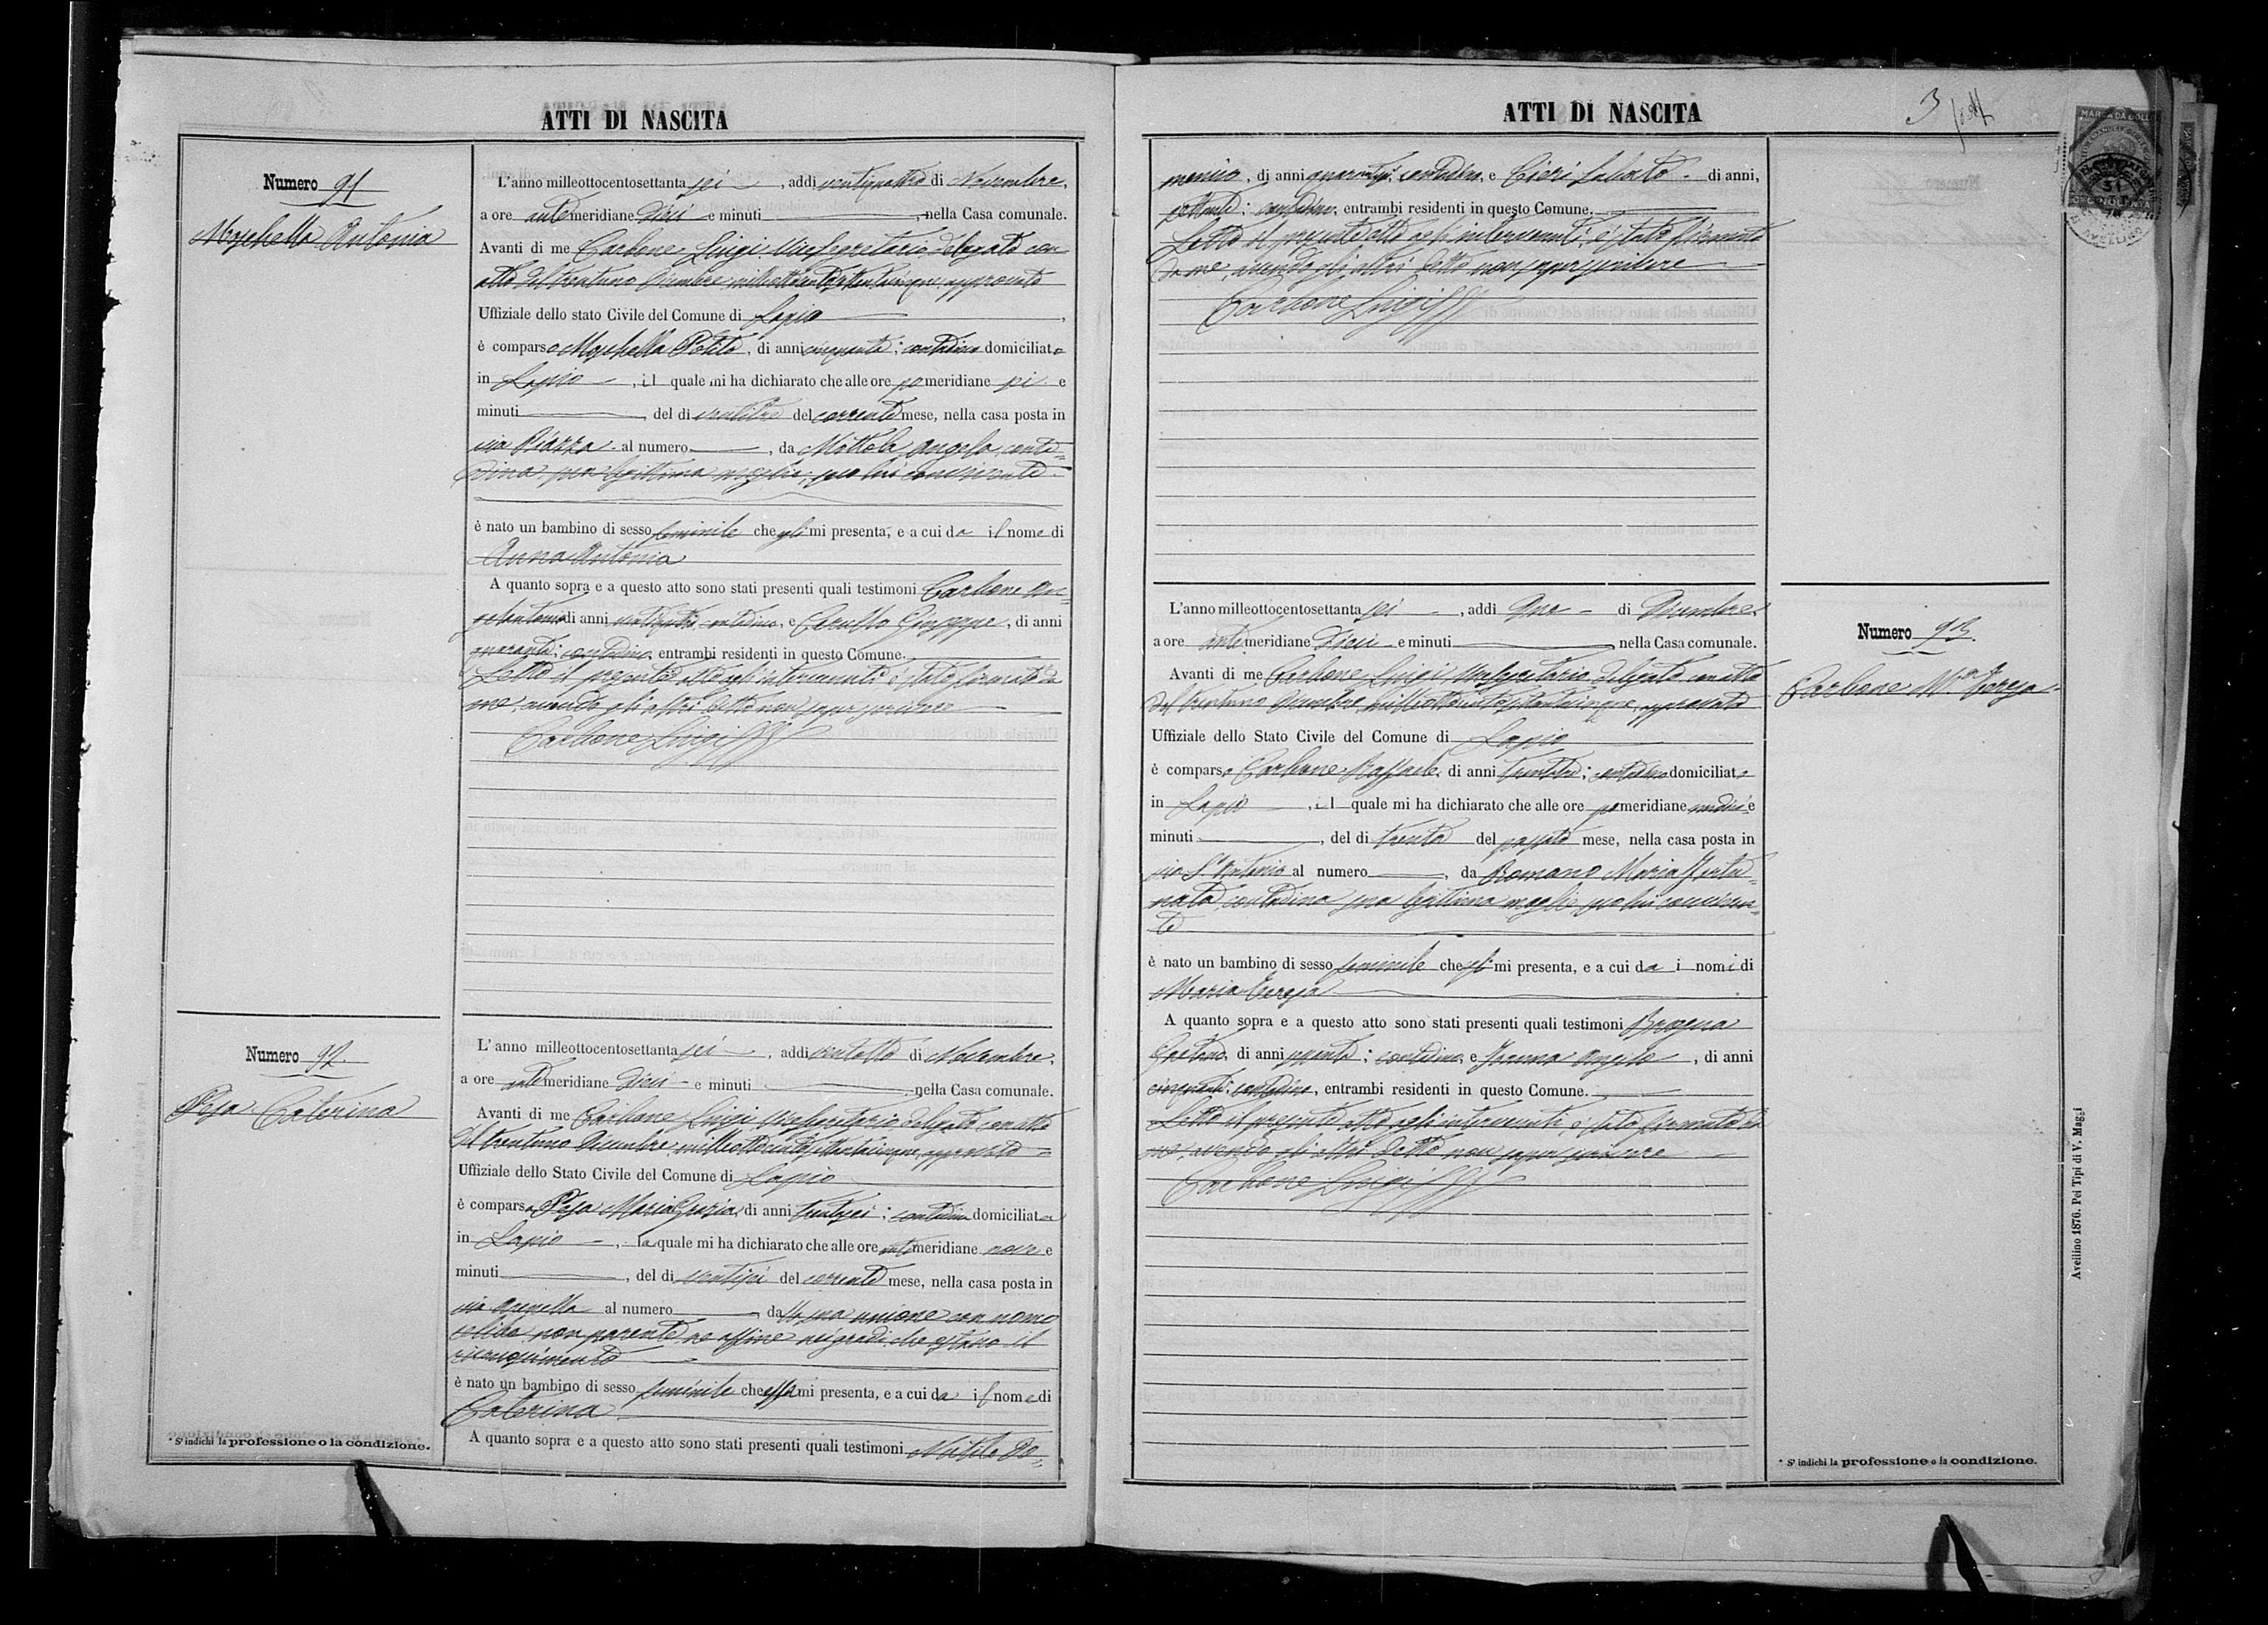 ATTI DI NASCITA
Numero 91
Moschella Antonia
L'anno milleottocentosettanta sei, addi ventiquattro di Novembre,
a ore antemeridiane dieci e minuti, nella Casa comunale.
Avanti di me Carbone Luigi Vicesegretario delegato con
atto del trentuno Dicembre milleottocentosettantacinque, approvato
Uffiziale dello stato Civile del Comune di Lapio,
è comparso Moschella Potito, di anni cinquanta; contadino domiciliato
in Lapio, il quale mi ha dichiarato che alle ore pomeridiane sei e
minuti, del di ventitre del corrente mese, nella casa posta in
via Piazza al numero, da Mottola Angela, conta=
dina sua legittima moglie, seco lui convivente
è nato un bambino di sesso feminile che egli mi presenta, e a cui da il nome di
Anna Antonia
A quanto sopra e a questo atto sono stati presenti quali testimoni Carbone An=
gelantonio di anni contadino, e Giuseppe, di anni
quaranta; contadino, entrambi residenti in questo Comune.
Letto il presente atto agli intervenuti è stato firmato da
me, avendo gli altri detto non saper scrivere
Carbone Luigi
Numero 92.
Pesa Caterina
L'anno milleottocentosettanta sei, addi ventotto di Novembre,
a ore antemeridiane dieci e minuti, nella Casa comunale.
Avanti di me Carbone Luigi Vicesegretario delegato con atto
del trentuno Dicembre milleottocentosettantacinque, approvato
Uffiziale dello Stato Civile del Comune di Lapio
è comparsa Pesa Maria Grazia, di anni trentasei; contadina domiciliata
in Lapio, la quale mi ha dichiarato che alle ore antemeridiane nove e
minuti, del di ventisei del corrente mese, nella casa posta in
via Arenella al numero, dalla sua unione con uomo
celibe, non parente ne affine nei gradi che ostano il
riconoscimento
è nato un bambino di sesso feminile che essa mi presenta, e a cui da il nome di
Caterina
A quanto sopra e a questo atto sono stati presenti quali testimoni Do=
* S' indichi la professione o la condizione.
ATTI DI NASCITA
3
menico, di anni contadino, e Cieri Sabato di anni,
settanta; contadino, entrambi residenti in questo Comune.
Letto il presente atto agli intervenuti è stato firmato
da me, avendo gli altri detto non saper scrivere
Carbone Luigi
L'anno milleottocentosettanta sei, addi due di Dicembre,
a ore antemeridiane dieci e minuti, nella Casa comunale.
Avanti di me Carbone Luigi Vicesegretario delegato con atto
del trentuno Dicembre milleottocentosettantacinque, approvato
Uffiziale dello Stato Civile del Comune di Lapio
è comparso Carbone Raffaele, di anni trentatre; contadino domiciliato
in Lapio, il quale mi ha dichiarato che alle ore pomeridiane undici e
minuti, del di trenta del passato mese, nella casa posta in
via S. Antonio al numero, da Romano Maria Fortu=
nata, contadina sua legittima moglie, seco lui conviven=
te
è nato un bambino di sesso feminile che egli mi presenta, e a cui da i nomi di
Maria Teresa
A quanto sopra e a questo atto sono stati presenti quali testimoni Brogna
Gaetano, di anni contadino, e Angelo, di anni
cinquanta; contadino, entrambi residenti in questo Comune.
Letto il presente atto agli intervenuti, è stato firmato da
me, avendo gli altri detto non saper scrivere
Carbone Luigi
Numero 93.
Carbone M.a Teresa
* S' indichi la professione o la condizione.
MARCA DA BOLLO
AVELLINO
Avellino 1876. Pei Tipi di V. Maggi